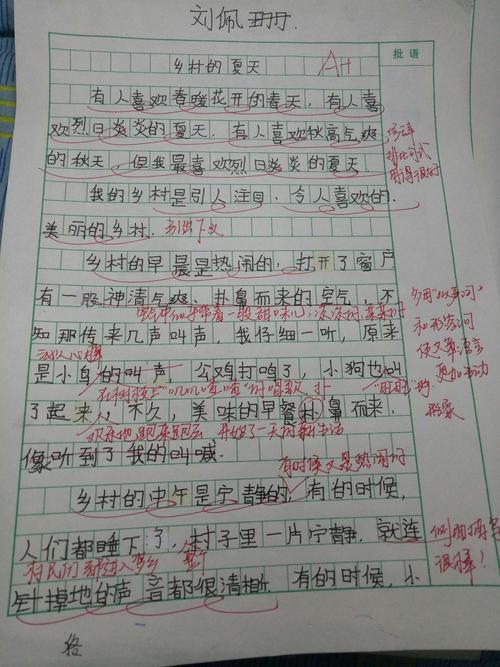 刘佩珊.
批语
乡村的夏天
A+
有人喜欢春暖花开的春天，有人喜
欢烈日炎炎的夏天，有人喜欢秋高气爽
的秋天，但我最喜欢烈日炎炎的夏天
排比句式
用得很好
我的乡村是引人注目，令人喜欢的，
美丽的乡村，
引出下文
乡村的早晨是热闹的，打开了窗户
有一股神清气爽、扑鼻而来的空气，不
知那传来几声叫声，我仔细一听，原来
沁人心脾
是小鸟的叫声，公鸡打鸣了，小狗也叫
在树枝上"叽叽喳喳"对唱歌
"旺旺"
了起来，不久，美味的早餐扑鼻而来，
开始了一天的新生活
像听到了我的叫喊。
多用"拟声词"
和形容词
使文章语言
更加生动
形象
有时候又是热闹的
乡村的中午是宁静的，有的时候，
人们都睡下了，村子里一片宁静，就连
村民们都进入梦乡
针掉地的声音都很清楚，有的时候，小
很棒！